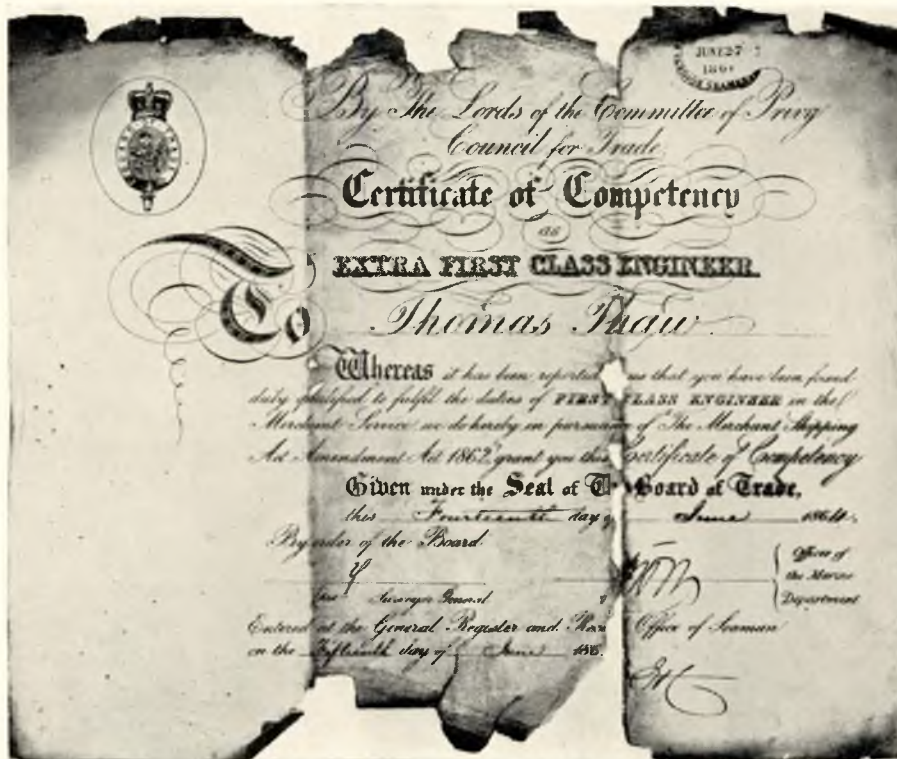 JUNE 27
By The Lords of the Committee of Privy
Council for Trade
Certificate of Competency
as
EXTRA FIRST CLASS ENGINEER.
To Thomas Thaw
Whereas it has been reported us that you have been found
duly qualified to fulfil the duties of FIRST CLASS ENGINEER in the
Merchant Service we do hereby in pursuance of The Merchant Shipping
Act Amendment Act 1862, grant you this Certificate of Competency
Given under the Seal of Board of Trade,
this Fourteenth day of June 1864.
By order of the Board
Officer of
the Marine
Department
Surveyor General
Entered at the General Register and Office of Seaman
on the Fifteenth day of June